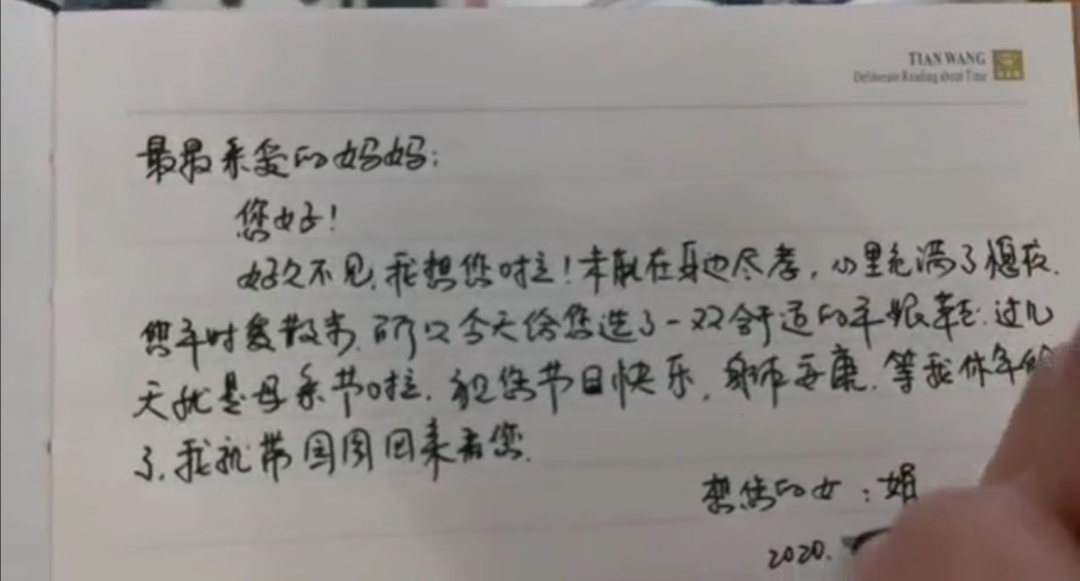 TIAN WANG
Deliberate Reading about Time
最最亲爱的妈妈:
您好!
好久不见,我想您啦!未能在身边尽孝,心里充满了
您平时爱散步,所以今天给您选了一双舒适的平跟鞋.过几
天就是母亲节啦,祝您节日快乐,身体安康.等我休年假
了,我就带囡囡回来看您.
想您的女:娟
2020.